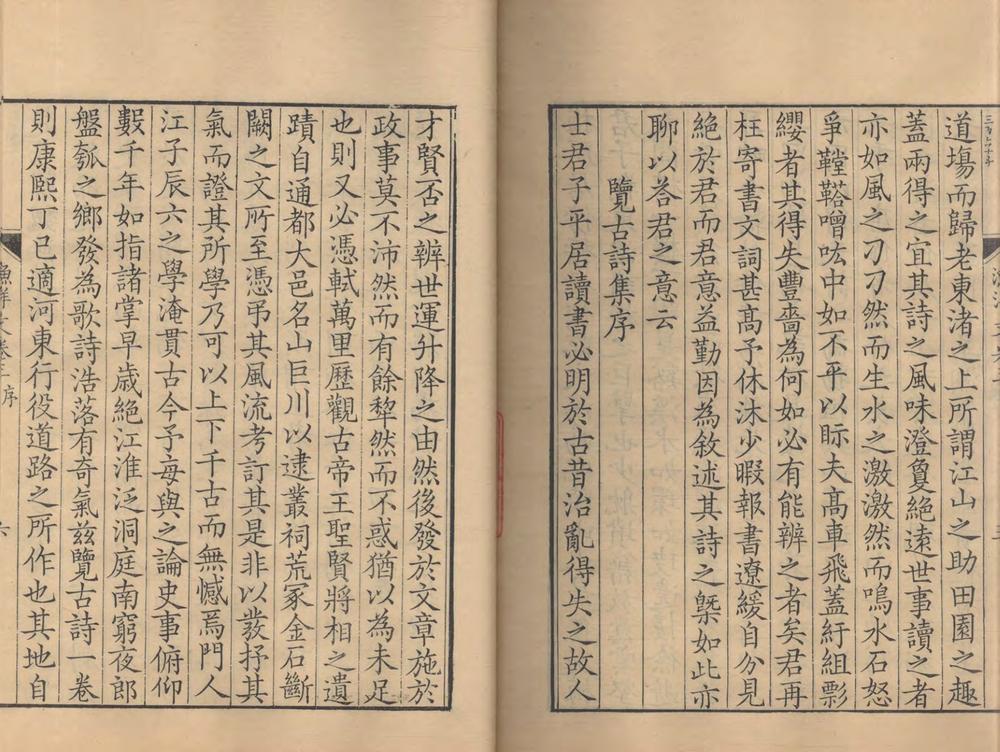 道塲而歸老東渚之上所謂江山之助田園之趣
蓋兩得之宜其詩之風味澄敻絶遠世事讀之者
亦如風之刁刁然而生水之激激然而鳴水石怒
爭鞺鞳噌吰中如不平以眎夫高車飛蓋紆組影
纓者其得失豐嗇為何如必有能辨之者矣君再
枉寄書文詞甚高予休沐少暇報書遼緩自分見
絶於君而君意益勤因為敘述其詩之槩如此亦
聊以荅君之意云
覽古詩集序
士君子平居讀書必明於古昔治亂得失之故人
才賢否之辨世運升降之由然後發於文章施於
政事莫不沛然而有餘犂然而不惑猶以為未足
也則又必憑軾萬里歷觀古帝王聖賢將相之遺
蹟自通都大邑名山巨川以逮叢祠荒冢金石斷
闕之文所至憑弔其風流考訂其是非以發抒其
氣而證其所學乃可以上下千古而無憾焉門人
江子辰六之學淹貫古今予每與之論史事俯仰
數千年如指諸掌早歲絶江淮泛洞庭南窮夜郎
盤瓠之鄉發為歌詩浩落有奇氣兹覽古詩一卷
則康熙丁巳適河東行役道路之所作也其地自
卷三
序
六